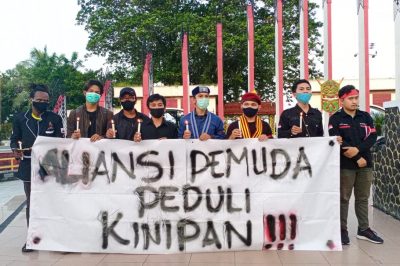 ALIANSI PEMUDA
PEDULI
KINIPAN !!!